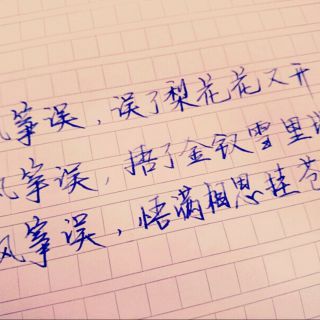 风筝误，误了梨花花又开
风筝误，捂了金钗雪里
风筝误，悟满相思挂苍